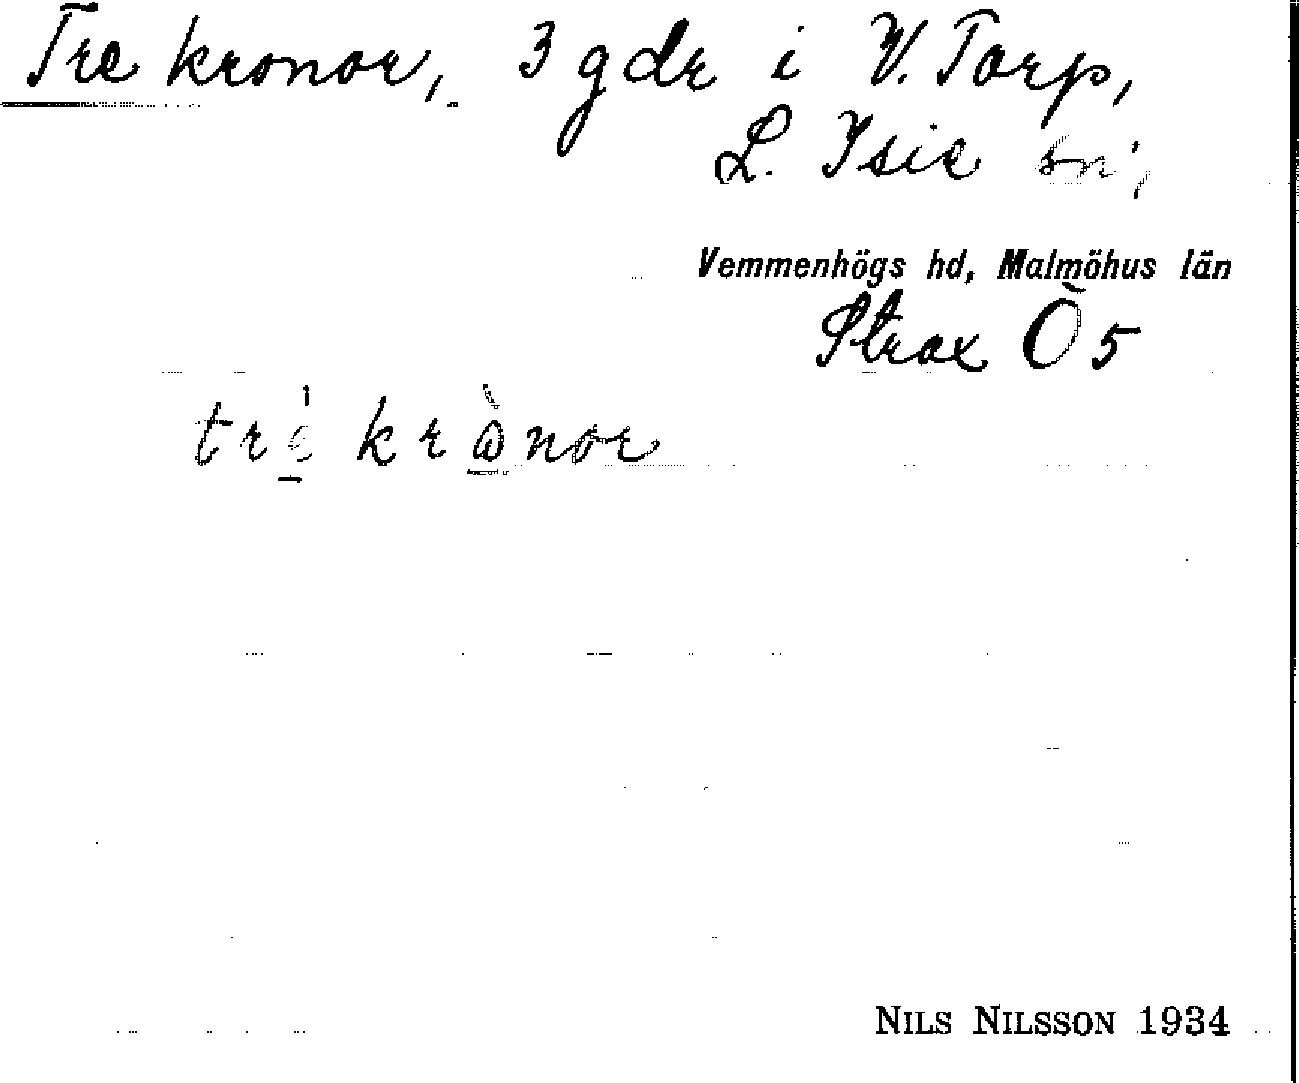 Tre kronor, 3 gdr i V. Torp,
L. Isie sn,
Vemmenhögs hd, Malmöhus län
Strax Ö 5
tré krònor
NILS NILSSON 1934